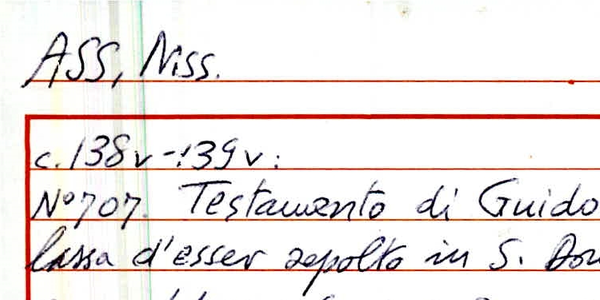 ASS, Niss.
c. 138v-139v:
N° 707. Testamento di Guido
lassa d'esser sepolto in S. Dom